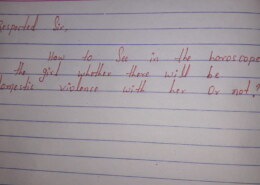 Respected Sir,
How to See in the horoscope
the girl whether there will be
domestic violence with her or not?